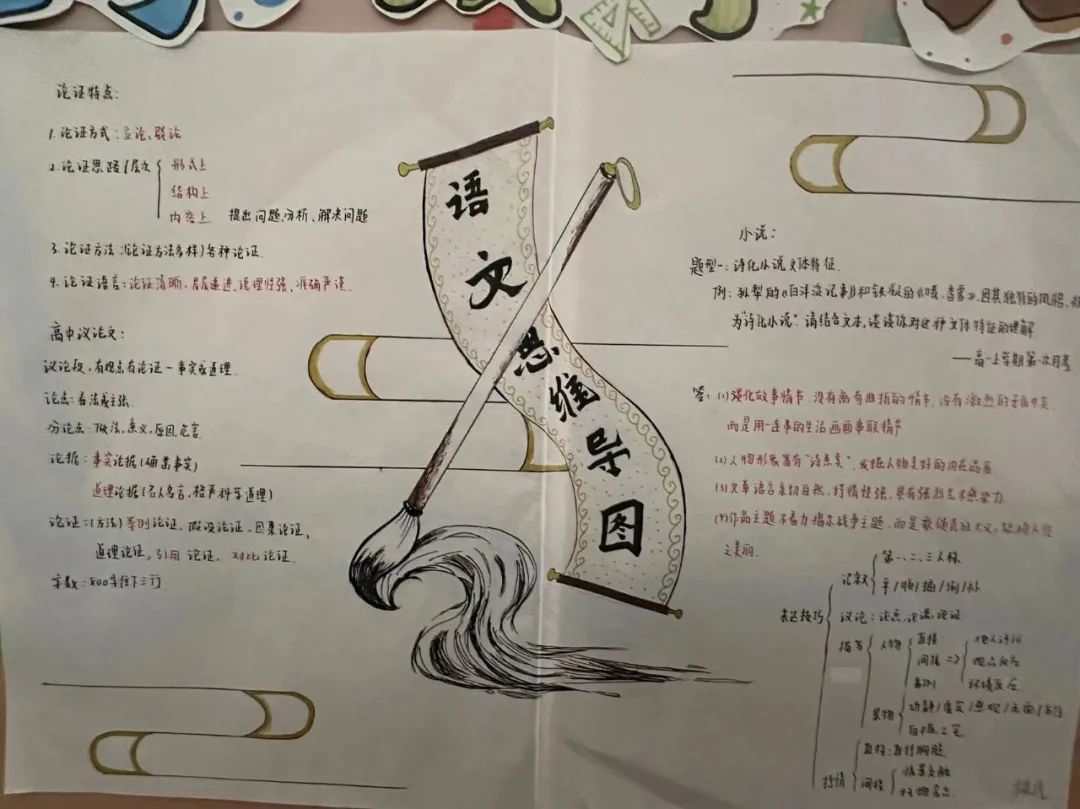 论证特点：
1.论证方式：立论、驳论
2.论证思路/层次
形式上
结构上
内容上 提出问题,分析、解决问题
3.论证方法：(论证方法多样)各种论证
4.论证语言：论证清晰，层层递进,说理性强，准确严谨
高中议论文：
议论段，有观点有论证～事实或道理
论点：看法或主张
分论点：做法,意义,原因,危害
论据：事实论据(确凿事实)
道理论据(名人名言,格言科学道理)
论证：(方法)举例论证,假设论证,因果论证,
道理论证,引用论证,对比论证
字数：800字往下三行
语文思维导图
小说：
题型一：诗化小说文体特征
例：孙犁的《白洋淀记事》和铁凝的《哦,香雪》,因其独特的风格,
为"诗化小说".请结合文本,谈谈你对这种文体特征的理解
——高一上学期第一次月考
答：(1)淡化故事情节,没有离奇曲折的情节,没有激烈的矛盾冲突
而是用一连串的生活画面串联情节
(2)人物形象富有"诗意美",发掘人物美好的内在品质
(3)文章语言亲切自然,抒情性强,具有强烈艺术感染力
(4)作品主题不着力揭示战争主题,而是歌颂民族大义,
之美丽.
表达技巧
记叙
第一、二、三人称
平/倒/插/
议论：论点,论据,论证
描写
人物
直接
间接 =>
景物
动静/虚实/
白描工笔
抒情
直接：直抒胸臆
间接
情景交融
托物言志